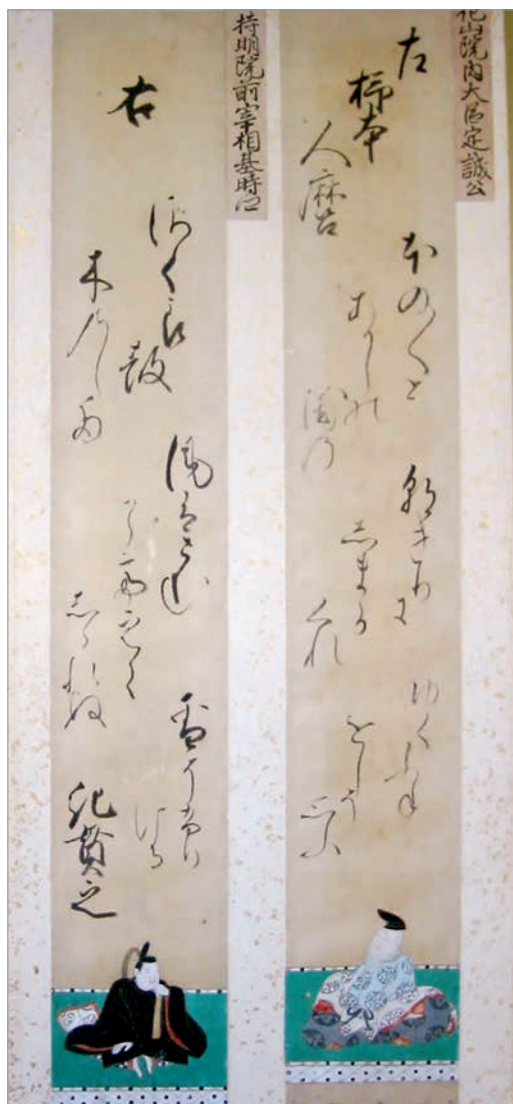 花山院内大臣定誠公
左
柿本
人麿
ほの〱と
あかしの
浦乃
朝きりに
しまか
くれ
ゆくふね
をしそ
思ふ
持明院前宰相基時卿
右
さくら
散
木のした
風はさむ
からて空に
しられぬ
雪そふり
ける
紀貫之